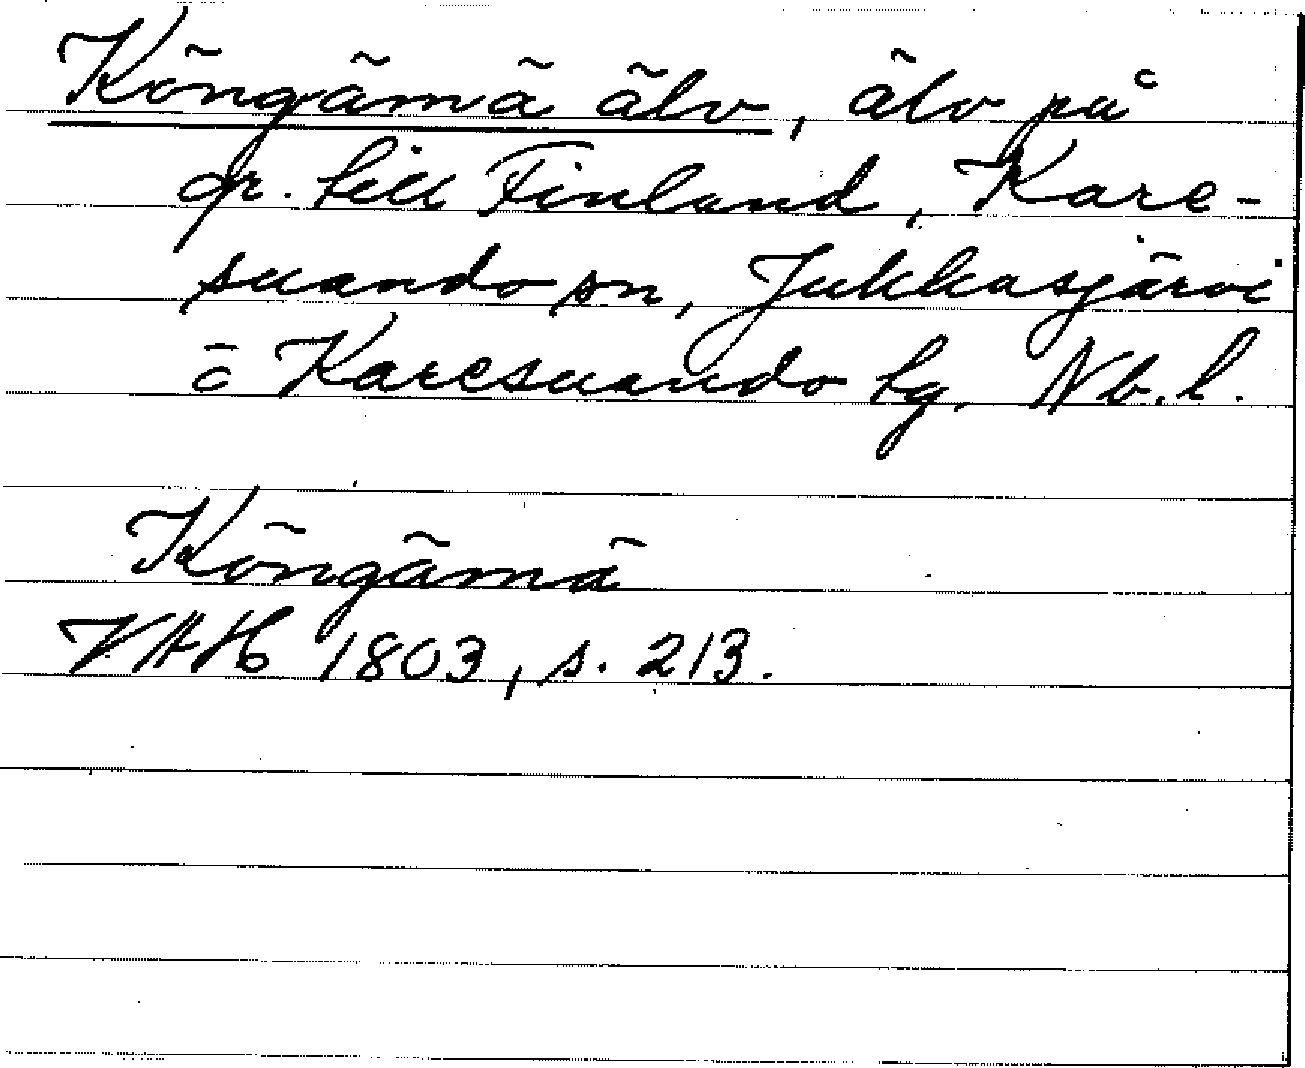 Köngämä älv, älv på
gr. till Finland, Kare-
suando sn, Jukkasjärvi
o Karesuando tg, Nb. l.
Köngämä
VAH 1803, s. 213.